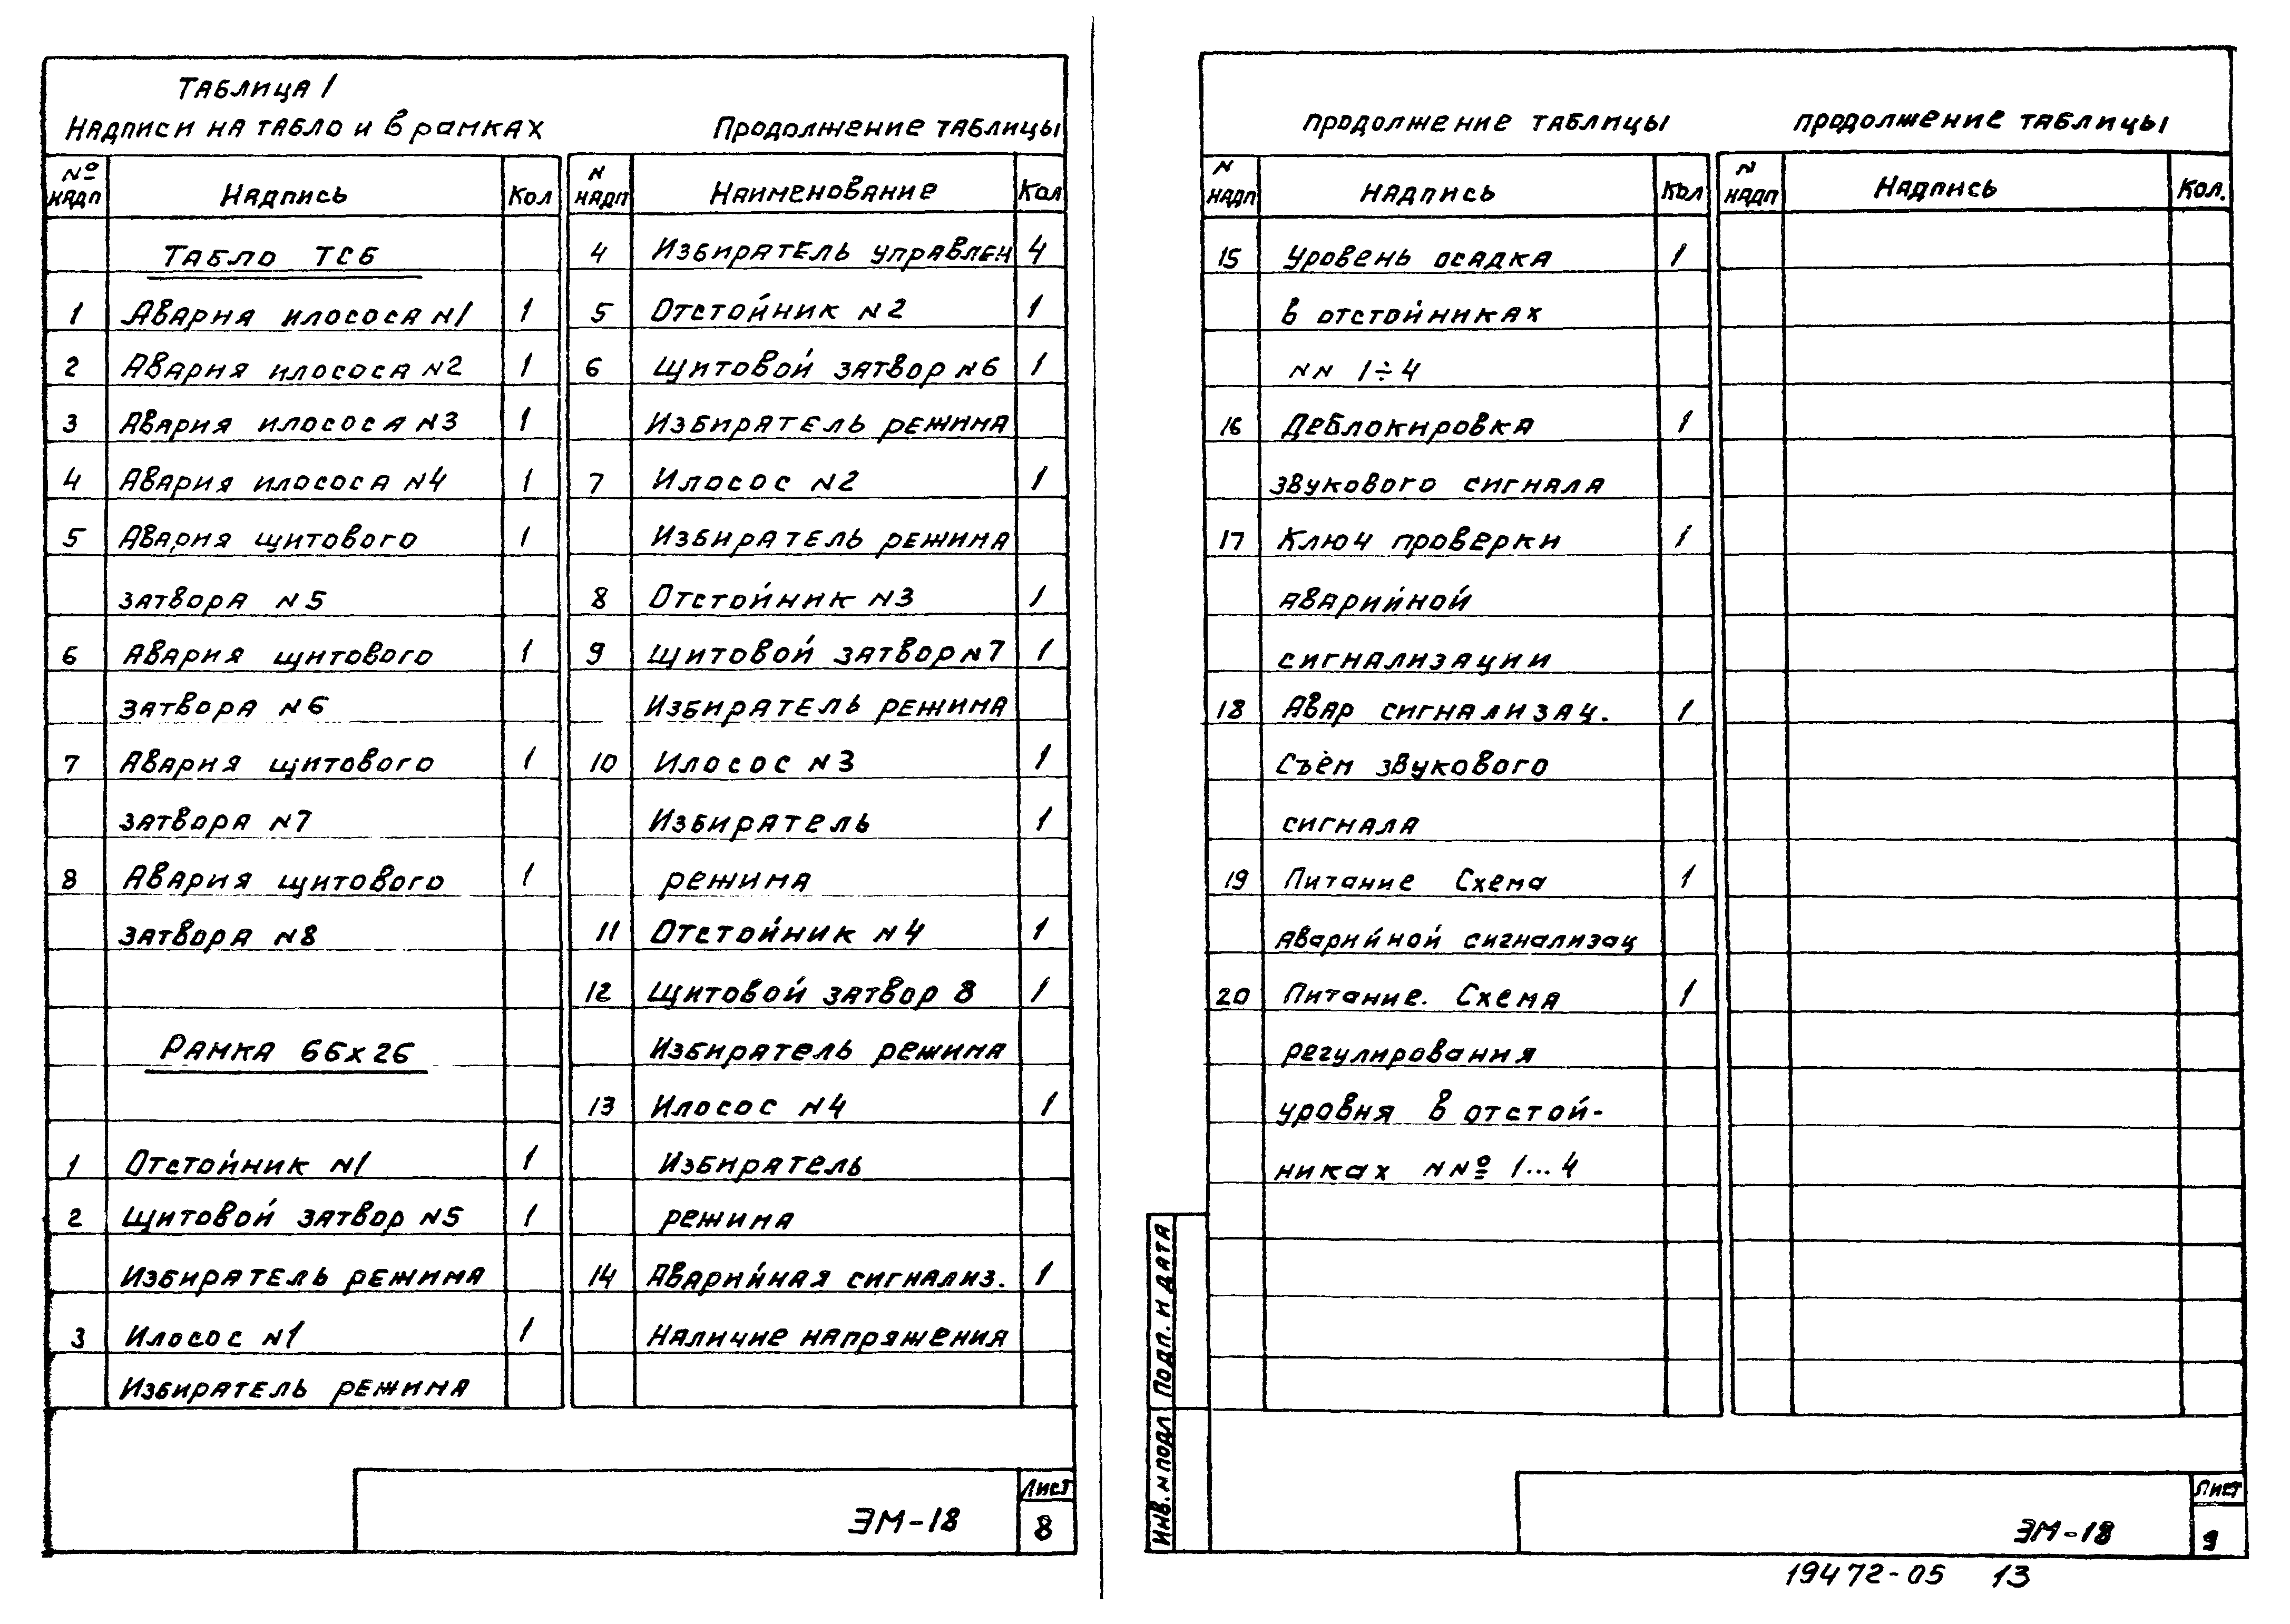 Таблица 1
Надписи на табло и в рамках
№ надп Надпись Кол
Табло ТСБ
1 Авария илососа N1 1
2 Авария илососа N2 1
3 Авария илососа N3 1
4 Авария илососа N4 1
5 Авария щитового 1
затвора N5
6 Авария щитового 1
затвора N6
7 Авария щитового 1
затвора N7
8 Авария щитового 1
затвора N8
Рамка 66х26
1 Отстойник N1 1
2 Щитовой затвор N5 1
Избиратель режима
3 Илосос N1 1
Избиратель режима
Продолжение таблицы
N надп Наименование Кол
4 Избиратель управлен 4
5 Отстойник N2 1
6 Щитовой затвор N6 1
Избиратель режима
7 Илосос N2 1
Избиратель режима
8 Отстойник N3 1
9 Щитовой затвор N7 1
Избиратель режима
10 Илосос N3 1
Избиратель 1
режима
11 Отстойник N4 1
12 Щитовой затвор 8 1
Избиратель режима
13 Илосос N4 1
Избиратель
режима
14 Аварийная сигнализ. 1
Наличие напряжения
ЭМ-18
Лист
8
продолжение таблицы
N надп Надпись Кол
15 Уровень осадка 1
в отстойниках
NN 1÷4
16 Деблокировка 1
звукового сигнала
17 Ключ проверки 1
аварийной
сигнализации
18 Авар сигнализац. 1
Съём звукового
сигнала
19 Питание Схема 1
аварийной сигнализац
20 Питание. Схема 1
регулирования
уровня в отстой-
никах NNº 1...4
продолжение таблицы
N надп Надпись Кол.
Инв. N подл Подп. и дата
ЭМ-18
Лист
9
19472-05 13